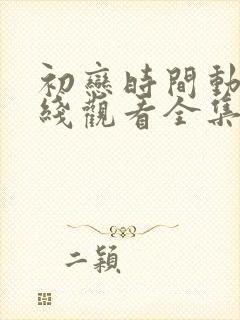 初戀時間動
綫觀看全集
二穎